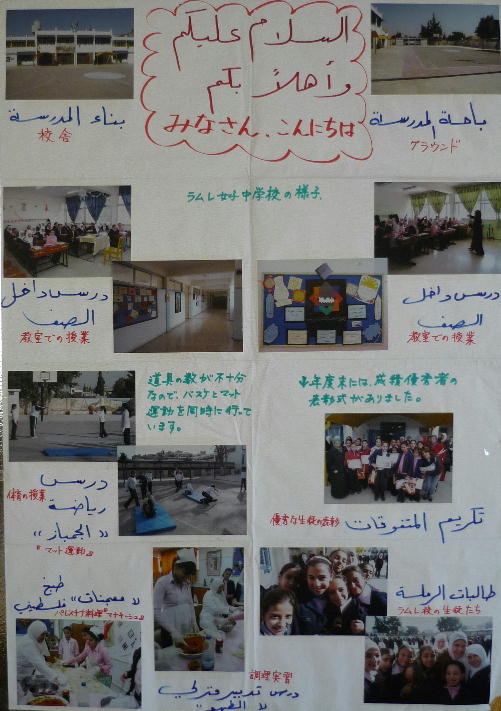 السلام عليكم
وأهلاً بكم
みなさん、こんにちは
بناء المدرسة
校舎
باحة المدرسة
グラウンド
ラムレ女子中学校の様子、
درس داخل
الصف
教室での授業
درس داخل
الصف
教室での授業
道具の数が不十分
なので、バスケとマット
運動を同時に行って
います。
半年度末には、成績優秀者の
表彰式がありました。
درس
体育の授業
رياضة
"الجمباز"
"マット運動"
تكريم المتفوقات
優秀な生徒の表彰
طبخ
"معجنات" فلسطيني
パレスチナ料理"マナキーシュ"
طالبات الرملة
ラムレ校の生徒たち
調理実習
درس تدبير منزلي
"الطبخ"